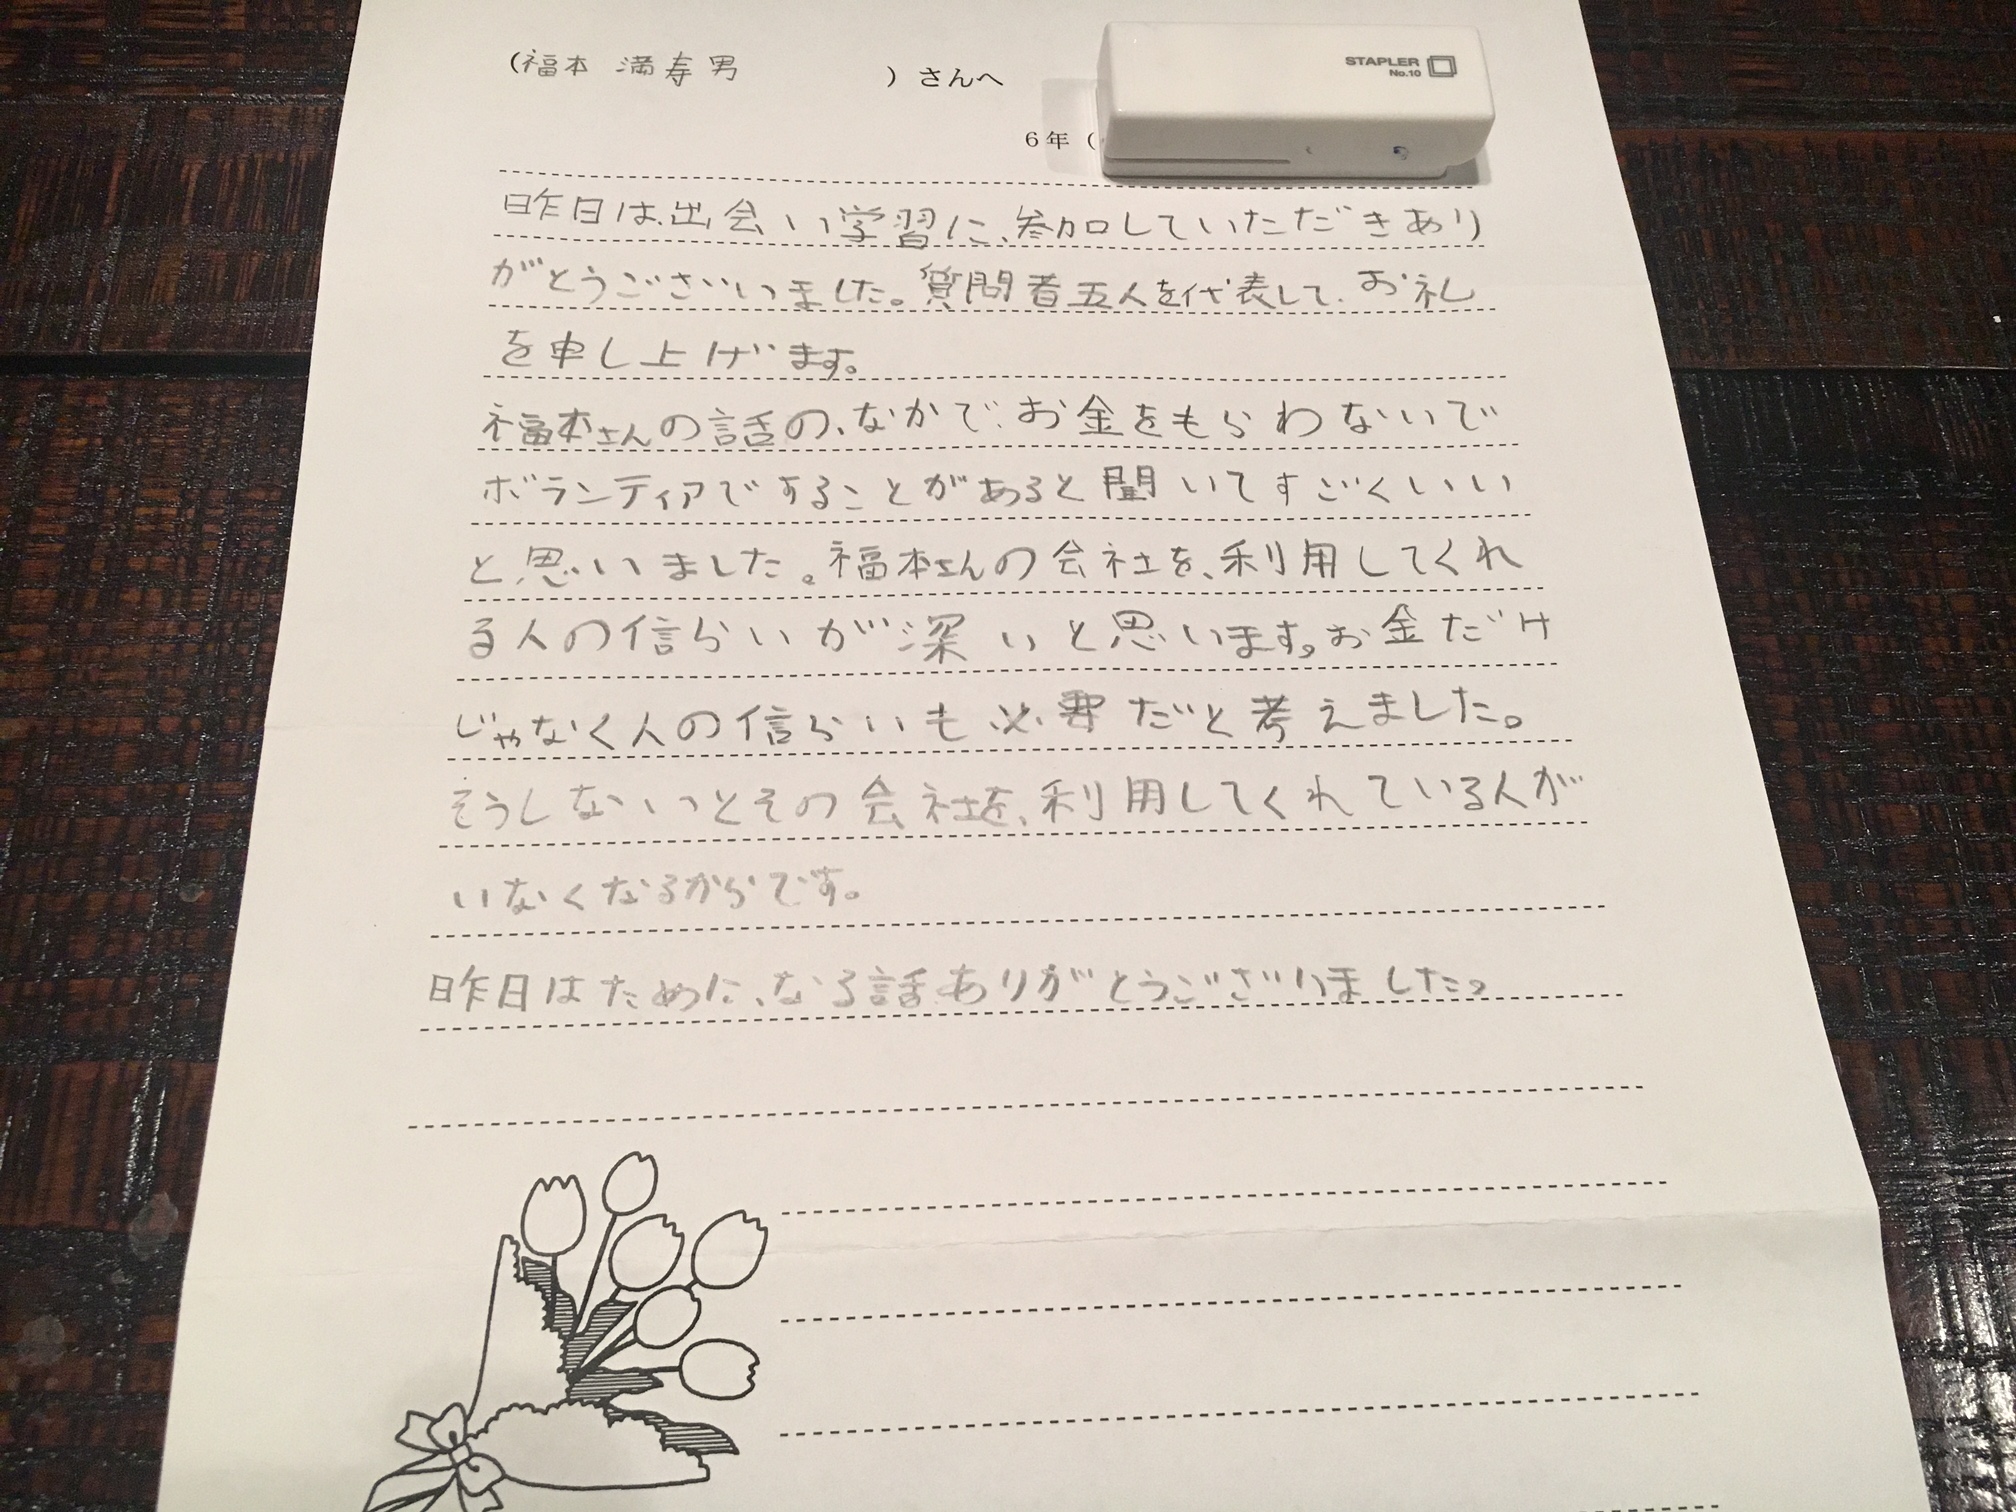 (福本 満寿男 ) さんへ
STAPLER
No.10
6年 (
昨日は、出会い学習に、参加していただきあり
がとうございました。質問者五人を代表して、お礼
を申し上げます。
福本さんの話の、なかで、お金をもらわないで
ボランティアですることがあると聞いてすごくいい
と思いました。福本さんの会社を、利用してくれ
る人の信らいが深いと思います。お金だけ
じゃなく人の信らいも必要だと考えました。
そうしないとその会社を、利用してくれている人が
いなくなるからです。
昨日はために、なる話ありがとうございました。